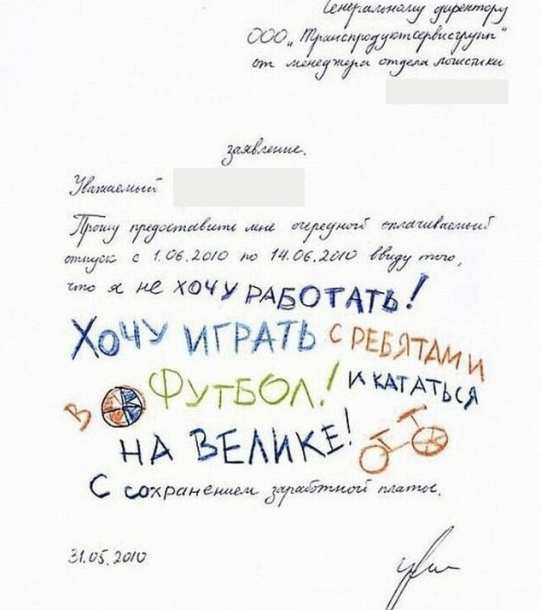 Генеральному директору
ООО „Транспродуктсервисгрупп"
от менеджера отдела логистики
заявление.
Уважаемый
Прошу предоставить мне очередной оплачиваемый
отпуск с 1.06.2010 по 14.06.2010 ввиду того,
что я не хочу РАБОТАТЬ!
ХОЧУ ИГРАТЬ С РЕБЯТАМИ
В ФУТБОЛ! И КАТАТЬСЯ
НА ВЕЛИКЕ!
С сохранением заработной платы.
31.05.2010